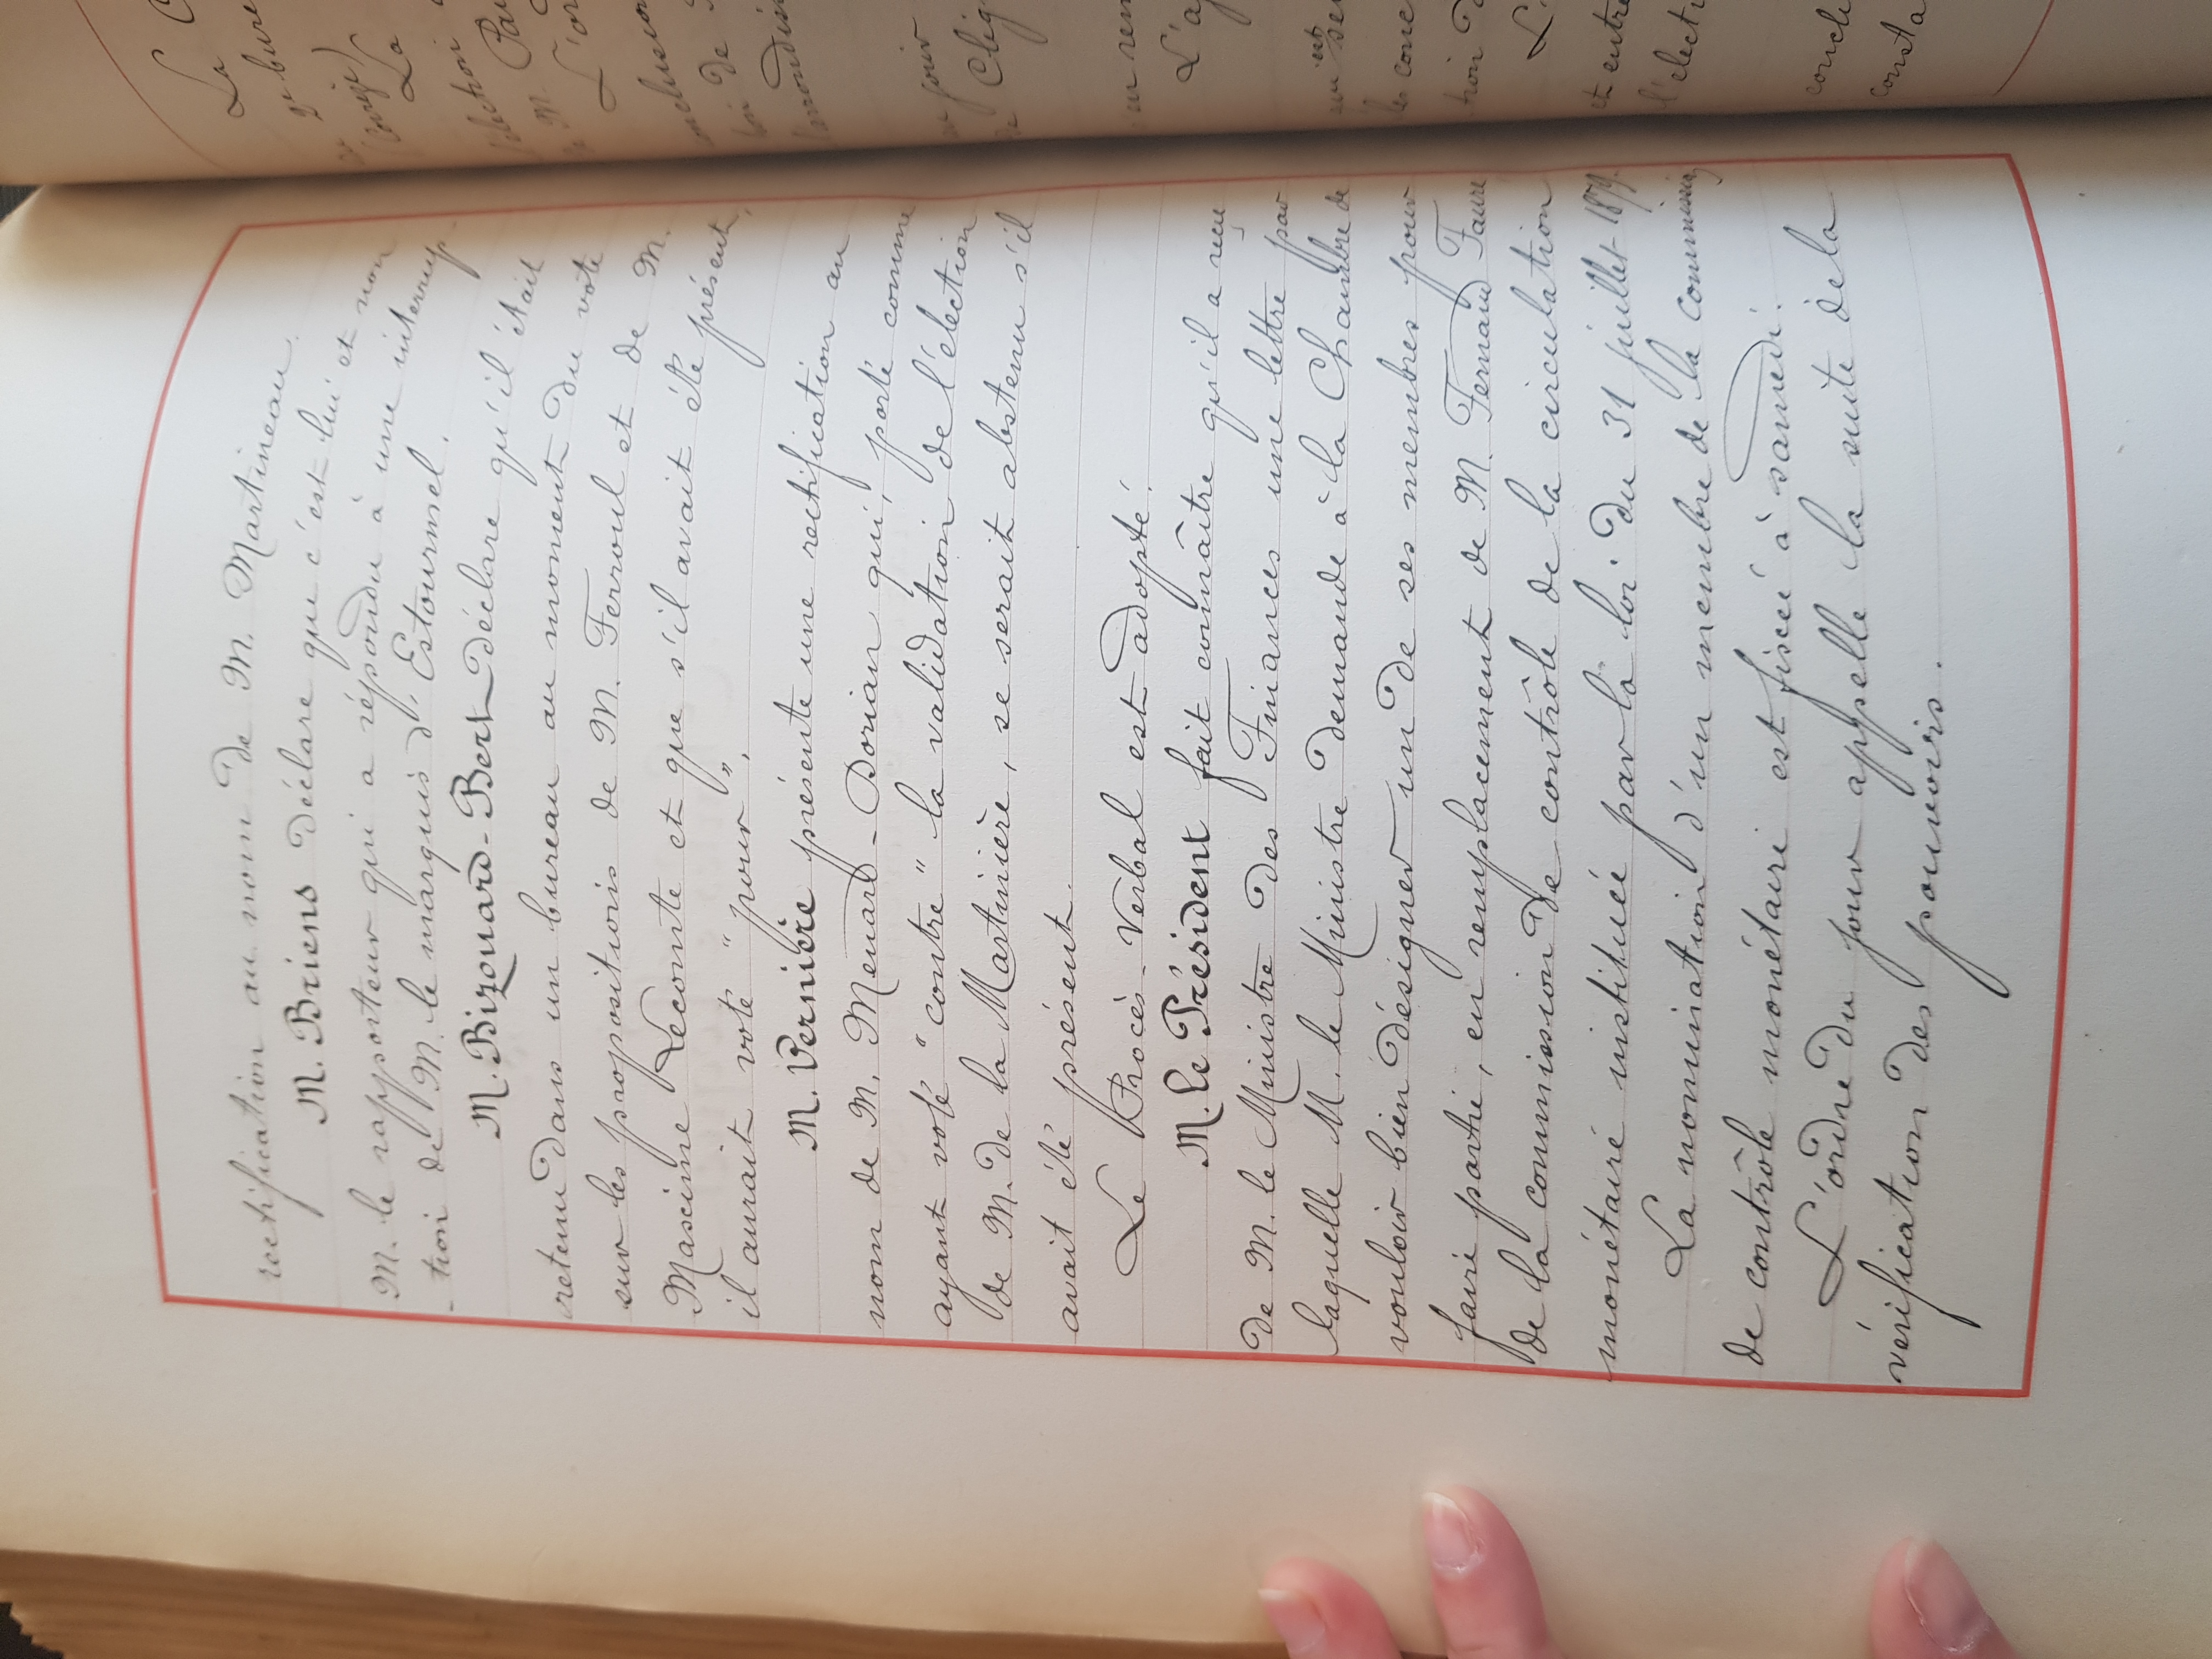 rectification au nom de M. Martineau.
M. Briens déclare que c'est lui et non
M. le rapporteur qui a répondu à une interrup-
-tion de M. le marquis d'Estourmel.
M. Bizouard-Bert déclare qu'il était
retenu dans un bureau au moment du vote
sur les propositions de M. Ferroul et de M.
Maxime Lecomte et que s'il avait été présent,
il aurait voté "pour".
M. Vernière présente une rectification au
nom de M. Menard-Dorian qui, porté comme
ayant voté "contre" la validation de l'élection
de M. de la Martinière, se serait abstenu s'il
avait été présent.
Le Procès-Verbal est adopté.
M. le Président fait connaître qu'il a reçu
de M. le Ministre des Finances une lettre par
laquelle M. le Ministre demande à la Chambre de
vouloir bien désigner un de ses membres pour
faire partie, en remplacement de M. Fernand Faure
de la commission de contrôle de la circulation
monétaire instituée par la loi du 31 juillet 1879.
La nomination d'un membre de la commission
de contrôle monétaire est fixée à samedi.
L'ordre du jour appelle la suite de la
vérification des pouvoirs.
La C
gr bure
Corrèze)
La
l'élection
M. Pau
L'or
onclusion
de
arrondis
jour
Clig
en rem
L'a
est
les conc
tion d
L
et entre
l'electi
concl
consta